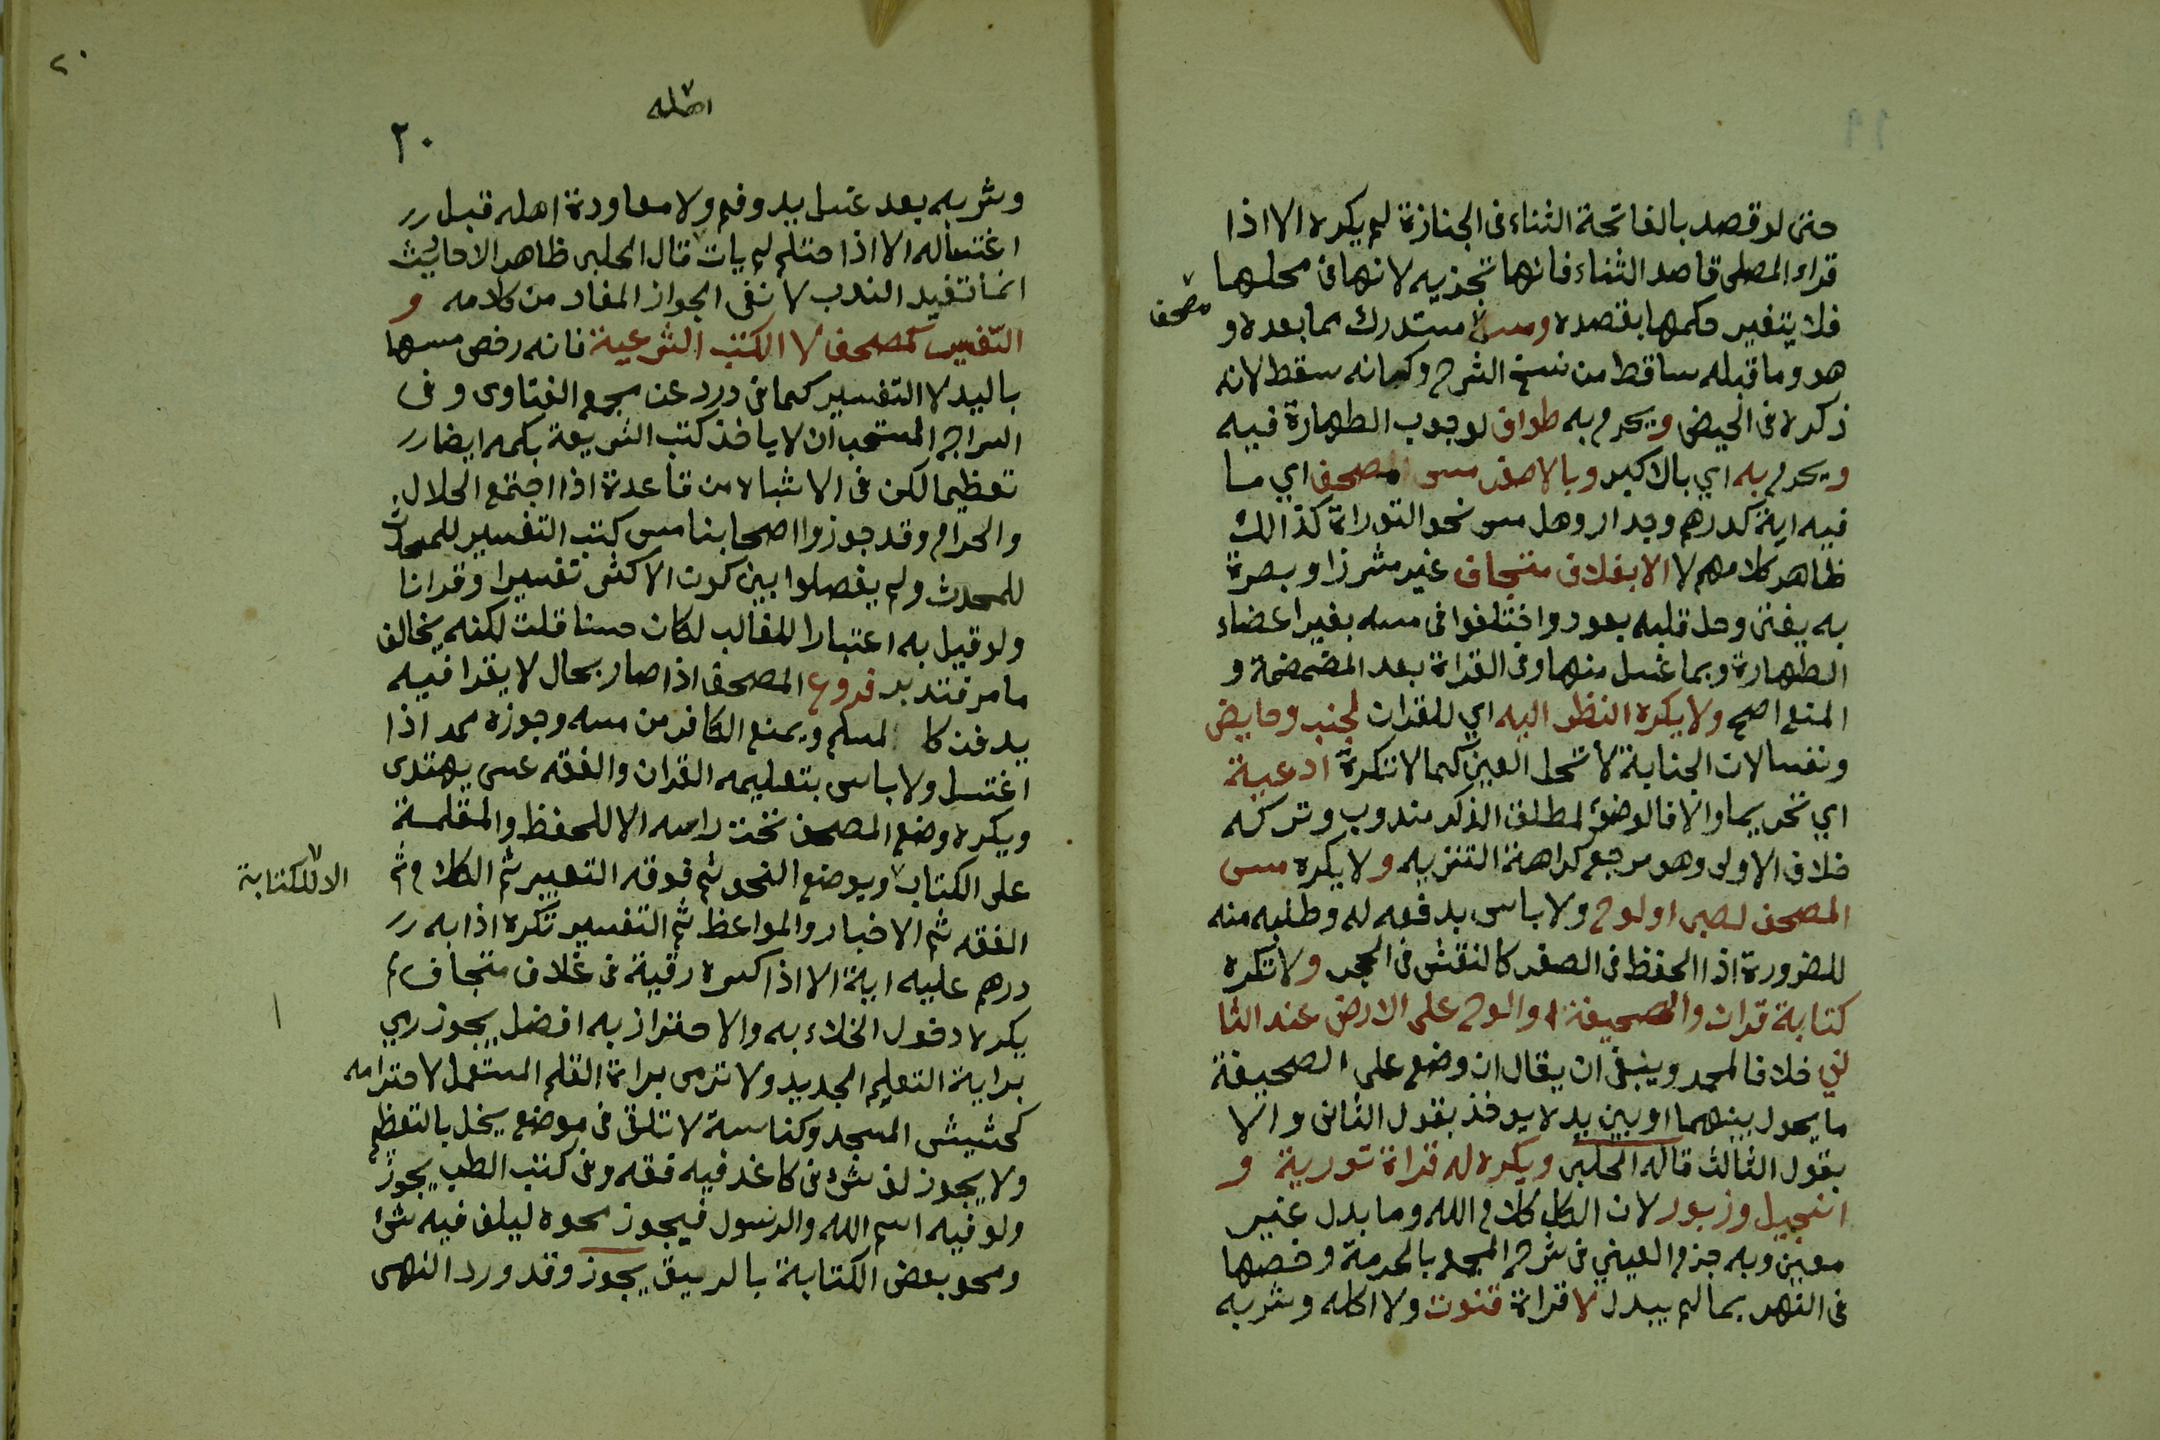 ١٩
حتى لو قصد بالفاتحة الثناء فى الجنازة لم يكره الا اذا
قراء المصلى قاصد الثناء فانها تجزيه لانها فى محلها
فلا يتغير حكمها بقصده ومس مستدرك بما بعده و
مصحف
هو وما قبله ساقط من نسخ الشرح وكانه سقط لانه
ذكره فى الحيض ويحرم به طواف لوجوب الطهارة فيه
ويحرم به اي بالاكبر وبالاصغر مس المصحف اي ما
فيه اية كدرهم وجدار وهل مس نحو التوراة كذالك
ظاهر كلامهم لا الا بغلاف متجاف غير مشرز او بصرة
به يفتى وحل قلبه بعود واختلفوا فى مسه بغير اعضاء
الطهارة وبما غسل منها وفى القراة بعد المضمضة و
المنع اصح ولا يكره النظر اليه اي للقران لجنب وحايض
ونفسا لان الجنابة لا تحل العين كما لا تكره ادعية
اي تحريما والا فالوضؤ لمطلق الذكر مندوب وتركه
خلاف الاولى وهو مرجع كراهة التنزيه ولا يكره مس
المصحف لصبى او لوح ولا باس بدفعه له وطلبه منه
للضرورة اذا الحفظ فى الصغر كالنقش فى الحجر ولا تكره
كتابة قران والصحيفة او اللوح على الارض عند الثا
نى خلافا لمحمد وينبغى ان يقال ان وضع على الصحيفة
ما يحول بينهما وبين يده لا يوخذ بقول الثانى والا
بقول الثالث قاله الحلبى ويكره له قراة تورية و
انجيل وزبور لان الكل كلام الله وما بدل غير
معين وبه جزم العينى فى شرح المجمع بالحرمة وخصها
فى النهر بما لم يبدل لا قراة قنوت ولا اكله وشربه
٢٠
٢٠
اهله
وشربه بعد غسل يد وفم ولا معاودة اهله قبل
اغتساله الا اذا حتلم لم يات قال الحلبى ظاهر الاحاديث
انما تفيد الندب لا نفى الجواز المفاد من كلامه و
التفسير كمصحف لا الكتب الشرعية فانه رخص مسها
باليد لا التفسير كما فى درر عن مجمع الفتاوى وفى
السراج المستحب ان لا ياخذ كتب الشريعة بكمه ايضا
تعظيما لكن فى الاشباه من قاعدة اذا اجتمع الحلال
والحرام وقد جوزوا اصحابنا مس كتب التفسير للمحدث
للمحدث ولم يفصلوا بين كون الاكثر تفسيرا وقرانا
ولو قيل به اعتبارا للغالب لكان حسنا قلت لكنه يخالف
ما مر فتدبر فروع المصحف اذا صار بحال لا يقرا فيه
يدفن كالمسلم ويمنع الكافر من مسه وجوزه محمد اذا
اغتسل ولا باس بتعليمه القران والفقه عسى يهتدى
ويكره وضع المصحف تحت راسه الا للحفظ والمقلمة
على الكتاب ويوضع النحو ثم فوقه التعبير ثم الكلام ثم
الا للكتابة
الفقه ثم الاخبار والمواعظ ثم التفسير تكره اذابه
درهم عليه اية الا اذا كسره رقية فى غلاف متجاف لم
يكره دخول الخلاء به والاحتراز به افضل يجوز رمي
براية التعليم الجديد ولا ترمى براة القلم المستعمل لاحترامه
كحشيش المسجد وكناسة لا تلقى فى موضع يخل بالتعظيم
ولا يجوز لف شئ فى كاغد فيه فقه وفى كتب الطب يجوز
ولو فيه اسم الله والرسول فيجوز محوه ليلف فيه شئ
ومحو بعض الكتابة بالريق يجوز وقد ورد النهى